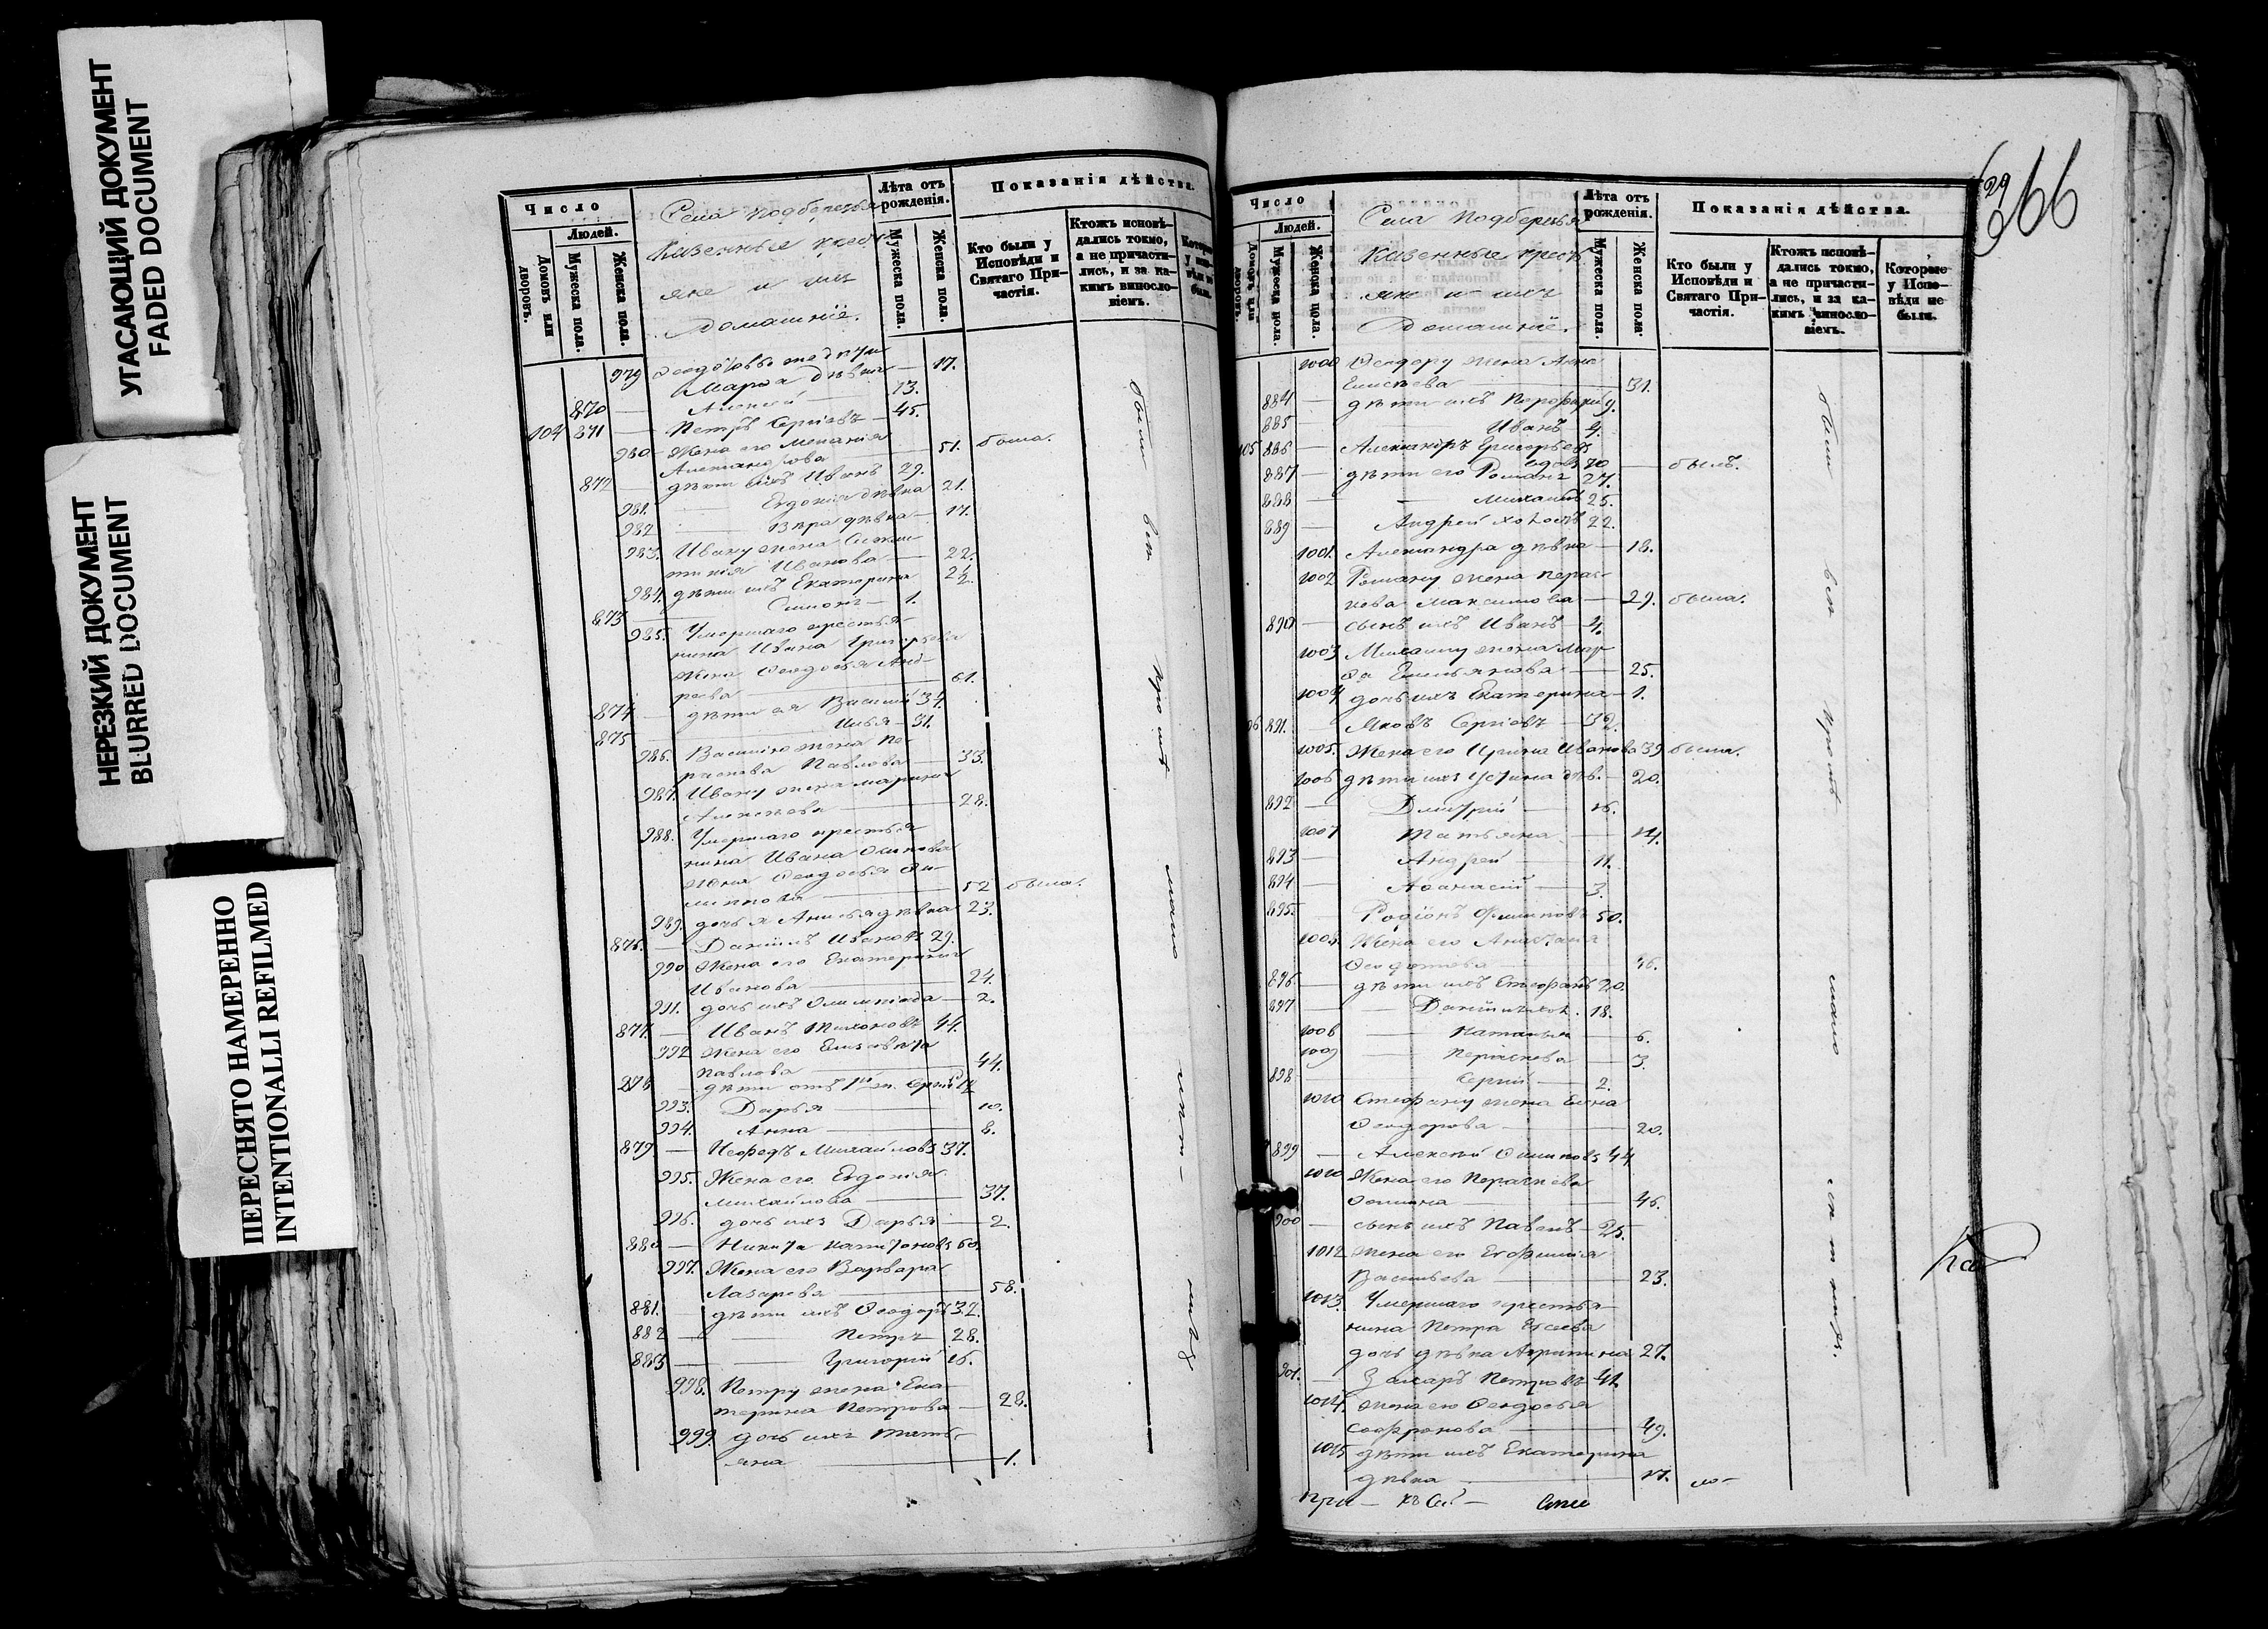 УГАСАЮЩИЙ ДОКУМЕНТ
FADED DOCUMENT
НЕРЕЗКИЙ ДОКУМЕНТ
BLURRED DOCUMENT
ПЕРЕСНЯТО НАМЕРЕННО
INTENTIONALLI REFILMED
Число
Людей.
Домовъ или дворовъ.
Мужеска пола.
Женска пола.
Села Подберезья
Казенные крестъ
яне и ихъ
Домашніе.
Лѣта отъ рожденія.
Мужеска пола.
Женска пола.
Показанія дѣйства.
Кто были у Исповѣди и Святаго Причастія.
Ктожъ исповѣдались токмо, а не причастились, и за какимъ винословіемъ.
979 Марѳа дѣвка — 17.
870 — Алексей — 13.
104 871 — Петръ Сергіевъ — 45.
980 Жена его Меланія
Александрова — 51. была.
872 — дѣти ихъ Иванъ 29.
981. Евдокія дѣвка 21.
982 Вѣра дѣвка — 17.
983. Ивану жена
Иванова — 22.
984. дѣти ихъ Екатерина 2½
873 — Симонъ — 1.
985. Умершаго крестья-
нина Ивана Григорьева
жена Ѳеодосья Анд-
реева — 61.
874 — дѣти ея Василій 34.
875 — Илья — 31.
986. Василію жена Пе-
раскева Павлова — 33.
987. Ивану жена Марина
Алексѣева — 28.
988. Умершаго крестья
нина Ивана Осипова
жена Ѳеодосья Фи-
липпова — 52 была.
989. дочь я Анисья дѣвка 23.
876. — Даніилъ Ивановъ 29.
990 Жена его Екатерина
Иванова — 24.
991. дочь ихъ Олимпіада — 2.
877. — Иванъ Тихоновъ 44.
992 Жена его Елизавета
Павлова — 44.
878 — дѣти отъ 1й ж. Сергій 14
993. Дарья — 10.
994. Анна — 8.
879 — Неѳедъ Михайловъ 37.
995. Жена его Евдокія
Михайлова — 37.
996. дочь ихъ Дарья — 2.
880 — Никита Капитоновъ 60.
997. Жена его Варвара
Лазарева — 58.
881. — дѣти ихъ Ѳеодоръ 32.
882 — Петръ 28.
883 — Григорій 16.
998. Петру жена Ека-
терина Петрова — 28.
999. дочь ихъ Татъ-
яна — 1.
были все
29
266
Число
Людей.
Домовъ или дворовъ.
Мужеска пола.
Женска пола.
Села Подберезья
Казенные крестъ
яне и ихъ
Домашніе.
Лѣта отъ рожденія.
Мужеска пола.
Женска пола.
Показанія дѣйства.
Кто были у Исповѣди и Святаго Причастія.
Ктожъ исповѣдались токмо, а не причастились, и за какимъ винословіемъ.
Которые у Исповѣди не были.
1000 Ѳеодору жена Анна
Елисѣева — 31.
884 — дѣти ихъ Порфирій 9.
885 — Иванъ 4.
105 886 — Александръ Григорьевъ
вдовъ 70 — былъ.
887 — дѣти его Романъ 27.
888 — Михаилъ 25.
889 — Андрей холостъ 22.
1001. Александра дѣвка — 18.
1002 Роману жена Перас-
кева Максимова — 29. была.
890 — сынъ ихъ Иванъ — 4.
1003 Михаилу жена Мар
ѳа Емельянова — 25.
1004 дочь ихъ Екатерина — 1.
891. Яковъ Сергіевъ — 39.
1005. Жена его Ирина Иванова 39 была.
1006 дѣти ихъ Устина дѣв. — 20.
892 — Дмитрій — 16.
1007 Татьяна — 14.
893 — Андрей — 11.
894 — Аѳанасій — 3.
895. Родіонъ Филиповъ 50.
1008 Жена его Анастасія
Ѳеодотова 46.
896 — дѣти ихъ Стефанъ 20.
897 — Даніилъ хол. 18.
1008 Наталья — 6.
1009 Пераскева — 3.
898 — Сергій — 2.
1010 Стефану жена Елена
Ѳеодорова — 20.
899 — Алексѣй Осиповъ 44
1010 Жена его Пераскева
Осипова — 46.
900 — сынъ ихъ Павелъ — 25.
1012 Жена его Евфимія
Васильева — 23.
1013. Умершаго крестья-
нина Петра Евсеева
дочь дѣвка Агрипина 27.
901. — Захаръ Петровъ 41.
1014. Жена его Ѳеодосья
Софронова — 49.
1015 дѣти ихъ Екатерина
дѣвка — 17.
были все